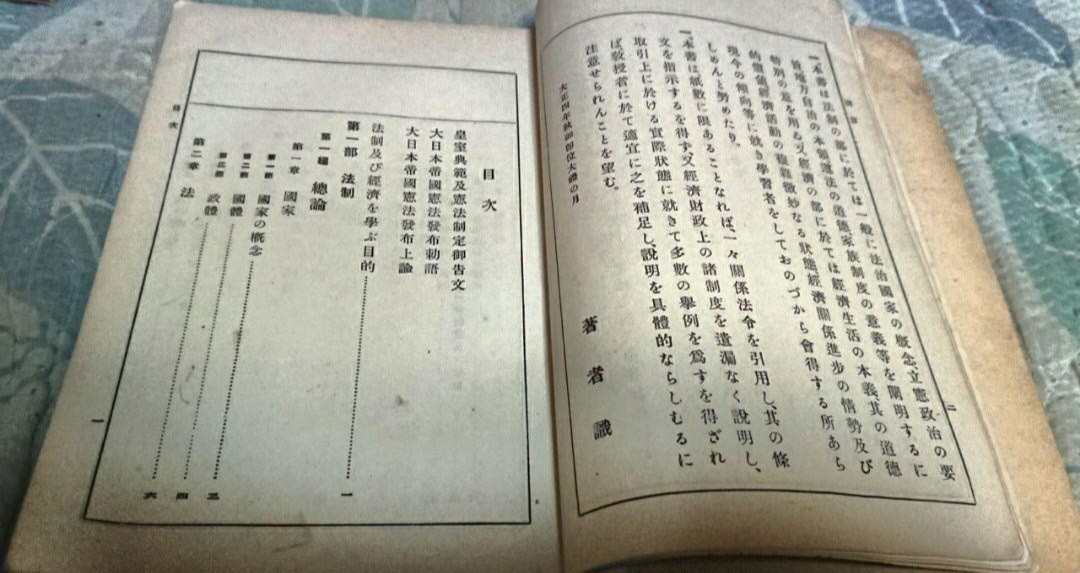 一、本書は法制の部に於ては一般に法治國家の概念、立憲政治の要
旨、地方自治の本領、憲法の道德、家族制度の意義等を闡明するに
特別の意を用ゐ、又經濟の部に於ては經濟生活の本義、其の道德
的觀念、經濟活動の複雜微妙なる狀態、經濟關係進步の情勢及び
現今の傾向等に就き學習者をしておのづから會得する所あら
しめんと努めたり。
一、本書は紙數に限あることなれば、一々關係法令を引用し、其の條
文を指示するを得ず、又經濟財政上の諸制度を遺漏なく說明し、
取引上に於ける實際狀態に就きて多數の擧例を爲すを得ざれ
ば、敎授者に於て適宜に之を補足し、說明を具體的ならしむるに
注意せられんことを望む。
大正四年秋卽位大禮の月
著者識
二
目次
皇室典範及憲法制定御告文
大日本帝國憲法發布勅語
大日本帝國憲法發布上諭
法制及び經濟を學ぶ目的 一
第一部 法制
第一編 總論
第一章 國家
第一節 國家の槪念
第二節 國體 三
第三節 政體 四
第二章 法 六
目次
一